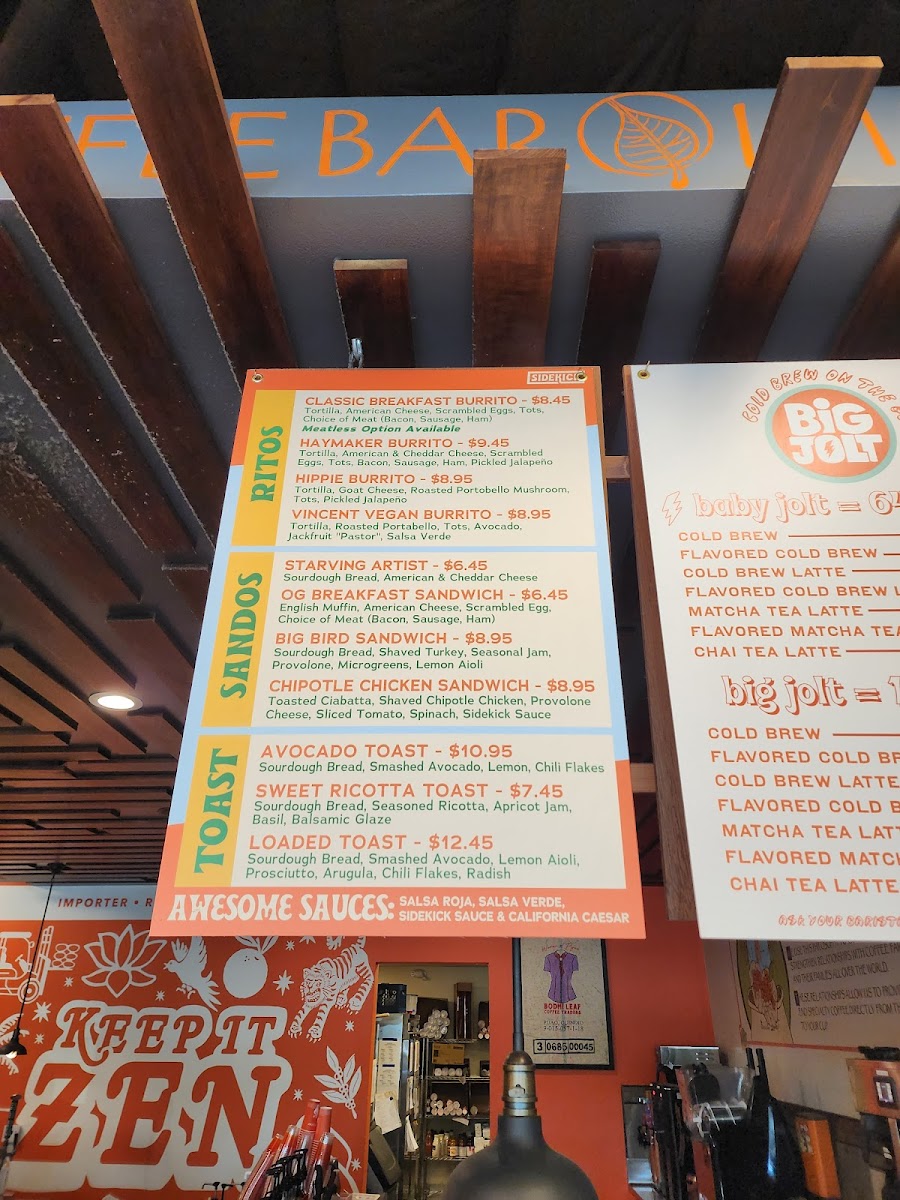 BAR
SIDEKICK
RITOS
CLASSIC BREAKFAST BURRITO - $8.45
Tortilla, American Cheese, Scrambled Eggs, Tots,
Choice of Meat (Bacon, Sausage, Ham)
Meatless Option Available
HAYMAKER BURRITO - $9.45
Tortilla, American & Cheddar Cheese, Scrambled
Eggs, Tots, Bacon, Sausage, Ham, Pickled Jalapeño
HIPPIE BURRITO - $8.95
Tortilla, Goat Cheese, Roasted Portobello Mushroom,
Tots, Pickled Jalapeño
VINCENT VEGAN BURRITO - $8.95
Tortilla, Roasted Portabello, Tots, Avocado,
Jackfruit "Pastor", Salsa Verde
SANDOS
STARVING ARTIST - $6.45
Sourdough Bread, American & Cheddar Cheese
OG BREAKFAST SANDWICH - $6.45
English Muffin, American Cheese, Scrambled Egg,
Choice of Meat (Bacon, Sausage, Ham)
BIG BIRD SANDWICH - $8.95
Sourdough Bread, Shaved Turkey, Seasonal Jam,
Provolone, Microgreens, Lemon Aioli
CHIPOTLE CHICKEN SANDWICH - $8.95
Toasted Ciabatta, Shaved Chipotle Chicken, Provolone
Cheese, Sliced Tomato, Spinach, Sidekick Sauce
TOAST
AVOCADO TOAST - $10.95
Sourdough Bread, Smashed Avocado, Lemon, Chili Flakes
SWEET RICOTTA TOAST - $7.45
Sourdough Bread, Seasoned Ricotta, Apricot Jam,
Basil, Balsamic Glaze
LOADED TOAST - $12.45
Sourdough Bread, Smashed Avocado, Lemon Aioli,
Prosciutto, Arugula, Chili Flakes, Radish
AWESOME SAUCES: SALSA ROJA, SALSA VERDE,
SIDEKICK SAUCE & CALIFORNIA CAESAR
COLD BREW ON THE
BIG
JOLT
baby jolt = 64
COLD BREW
FLAVORED COLD BREW
COLD BREW LATTE
FLAVORED COLD BREW L
MATCHA TEA LATTE
FLAVORED MATCHA TEA
CHAI TEA LATTE
big jolt = 1
COLD BREW
FLAVORED COLD BR
COLD BREW LATTE
FLAVORED COLD B
MATCHA TEA LATT
FLAVORED MATC
CHAI TEA LATTE
ASK YOUR BARIST
IMPORTER • R
KEEP IT
ZEN
BODHI LEAF
COFFEE TRADERS
3 0685 00045